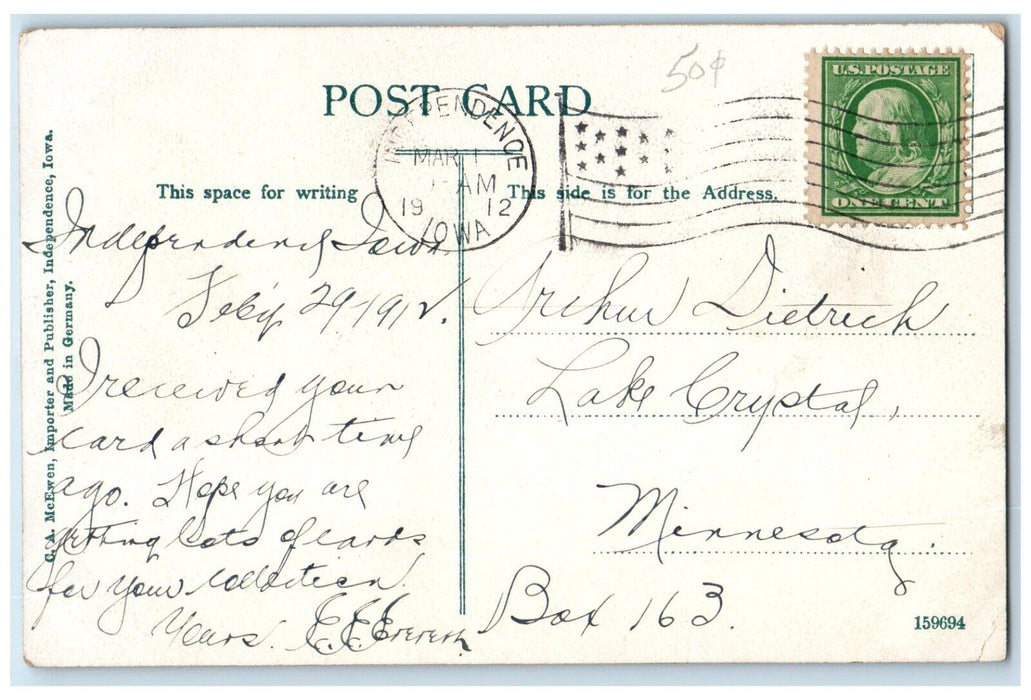 50¢
U.S. POSTAGE
ONE CENT
POST CARD
INDEPENDENCE
MAR 1
AM
19 12
IOWA
This space for writing
This side is for the Address.
C. A. McEwen, Importer and Publisher, Independence, Iowa.
Made in Germany.
Independence Iowa.
Feb'y 29 1912.
I received your
card a short time
ago. Hope you are
getting lots of cards
for your collection.
Yours. E.E. Everett
Arthur Dietrich
Lake Crystal,
Minnesota.
Box 163.
159694